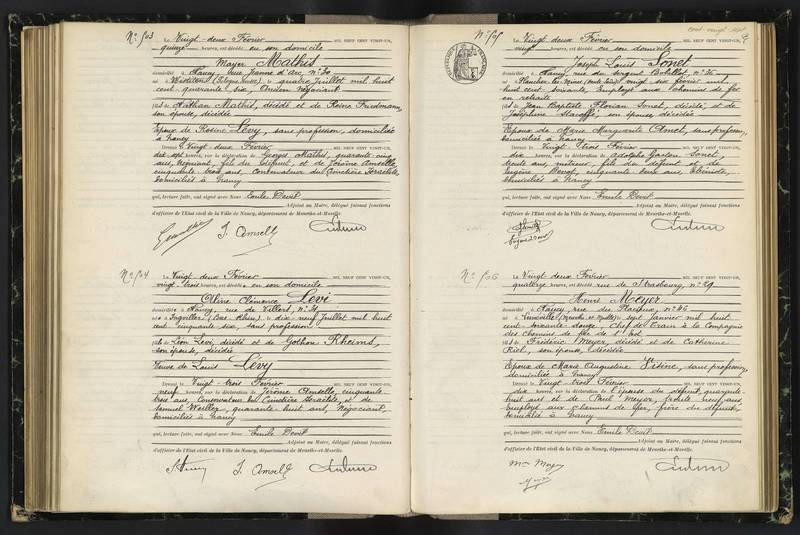 N° 503
Le Vingt-deux Février MIL NEUF CENT VINGT-UN,
quinze heures, est décédé en son domicile
Mayer Mathis
domicilié à Nancy, rue Jeanne d'Arc, n° 30
né à quatre Juillet mil huit
cent quarante six, Ancien Négociant
fils de Nathan Mathis, décédé et de Reine Friedmann,
son épouse, décédée
Epoux de Rosine Lévy, sans profession, domiciliée
à Nancy
Dressé le Vingt deux Février MIL NEUF CENT VINGT-UN,
dix sept heures, sur la déclaration de Georges Mathis, quarante cinq
ans, Négociant, fils du défunt et de Jérôme Amselle,
cinquante trois ans, Conservateur du Cimetière Israélite,
domiciliés à Nancy
qui, lecture faite, ont signé avec Nous Emile Devit
Adjoint au Maire, délégué faisant fonctions
d'officier de l'Etat civil de la Ville de Nancy, département de Meurthe-et-Moselle.
J. Amselle
N° 504
Le Vingt deux Février MIL NEUF CENT VINGT-UN,
vingt trois heures, est décédée en son domicile
Clémence Levi
domiciliée à Nancy, rue de Villers, n° 31
née à Ingwiller (Bas-Rhin) le dix neuf Juillet mil huit
cent cinquante six, sans profession
fille de Léon Levi, décédé et de Gothon Rheims,
son épouse, décédée
Veuve de Louis Lévy
Dressé le Vingt-trois Février MIL NEUF CENT VINGT-UN,
neuf heures, sur la déclaration de Jérôme Amselle, cinquante
trois ans, Conservateur du Cimetière Israélite, et de
Samuel Weiller, quarante huit ans, Négociant,
domiciliés à Nancy
qui, lecture faite, ont signé avec Nous Emile Devit
Adjoint au Maire, délégué faisant fonctions
d'officier de l'Etat civil de la Ville de Nancy, département de Meurthe-et-Moselle.
J. Amselle
cent-vingt-sept
N° 505
Le Vingt deux Février MIL NEUF CENT VINGT-UN,
vingt heures, est décédé en son domicile
Joseph Louis Sonet
domicilié à Nancy, rue du Sergent Bobillot, n° 36
né à Plancher les Mines vingt six février mil
huit cent soixante, Employé aux chemins de fer
en retraite
fils de Jean Baptiste Florian Sonet, décédé et de
Joséphine son épouse décédée
Epoux de Marie Marguerite sans profession,
domiciliée à Nancy
Dressé le Vingt trois Février MIL NEUF CENT VINGT-UN,
dix heures, sur la déclaration de Adolphe Gaston Sonet,
trente ans, fils du défunt et de
Eugène cinquante deux ans, Ebéniste,
domiciliés à Nancy
qui, lecture faite, ont signé avec Nous Emile Devit
Adjoint au Maire, délégué faisant fonctions
d'officier de l'Etat civil de la Ville de Nancy, département de Meurthe-et-Moselle.
N° 506
Le Vingt deux Février MIL NEUF CENT VINGT-UN,
quatorze heures, rue de Strasbourg, n° 29
Henri Meyer
domicilié à Nancy, rue du Placieux, n° 46
né à Lunéville (Meurthe et Moselle) le sept Janvier mil huit
cent soixante douze, Chef de Train à la Compagnie
des chemins de fer de l'Est
fils de Frédéric Meyer, décédé et de Catherine
son épouse, décédée
Epoux de Marie Augustine sans profession,
domiciliée à Nancy
Dressé le Vingt-trois Février MIL NEUF CENT VINGT-UN,
dix heures, sur la déclaration de l'épouse du défunt, quarante-
huit ans et de Paul Meyer, trente neuf ans
employé aux chemins de fer, frère du défunt,
domicilié à Nancy
qui, lecture faite, ont signé avec Nous Emile Devit
Adjoint au Maire, délégué faisant fonctions
d'officier de l'Etat civil de la Ville de Nancy, département de Meurthe-et-Moselle.
Mme Meyer